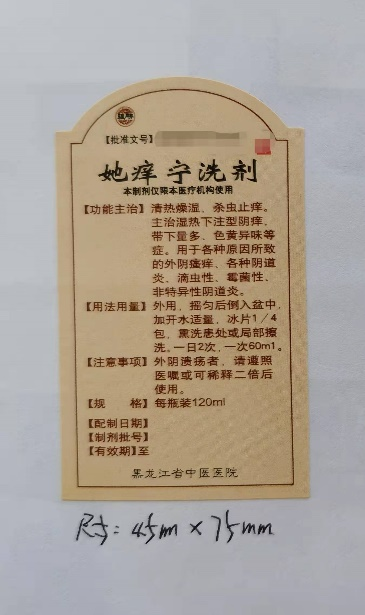 【批准文号】
她痒宁洗剂
本制剂仅限本医疗机构使用
【功能主治】清热燥湿、杀虫止痒。
主治湿热下注型阴痒。
带下量多、色黄异味等
症。用于各种原因所致
的外阴瘙痒、各种阴道
炎、滴虫性、霉菌性、
非特异性阴道炎。
【用法用量】外用，摇匀后倒入盆中，
加开水适量，冰片1／4
包，熏洗患处或局部擦
洗。一日2次，一次60ml。
【注意事项】外阴溃疡者，请遵照
医嘱或可稀释二倍后
使用。
【规　格】每瓶装120ml
【配制日期】
【制剂批号】
【有效期】至
黑龙江省中医医院
尺寸：45m×75mm